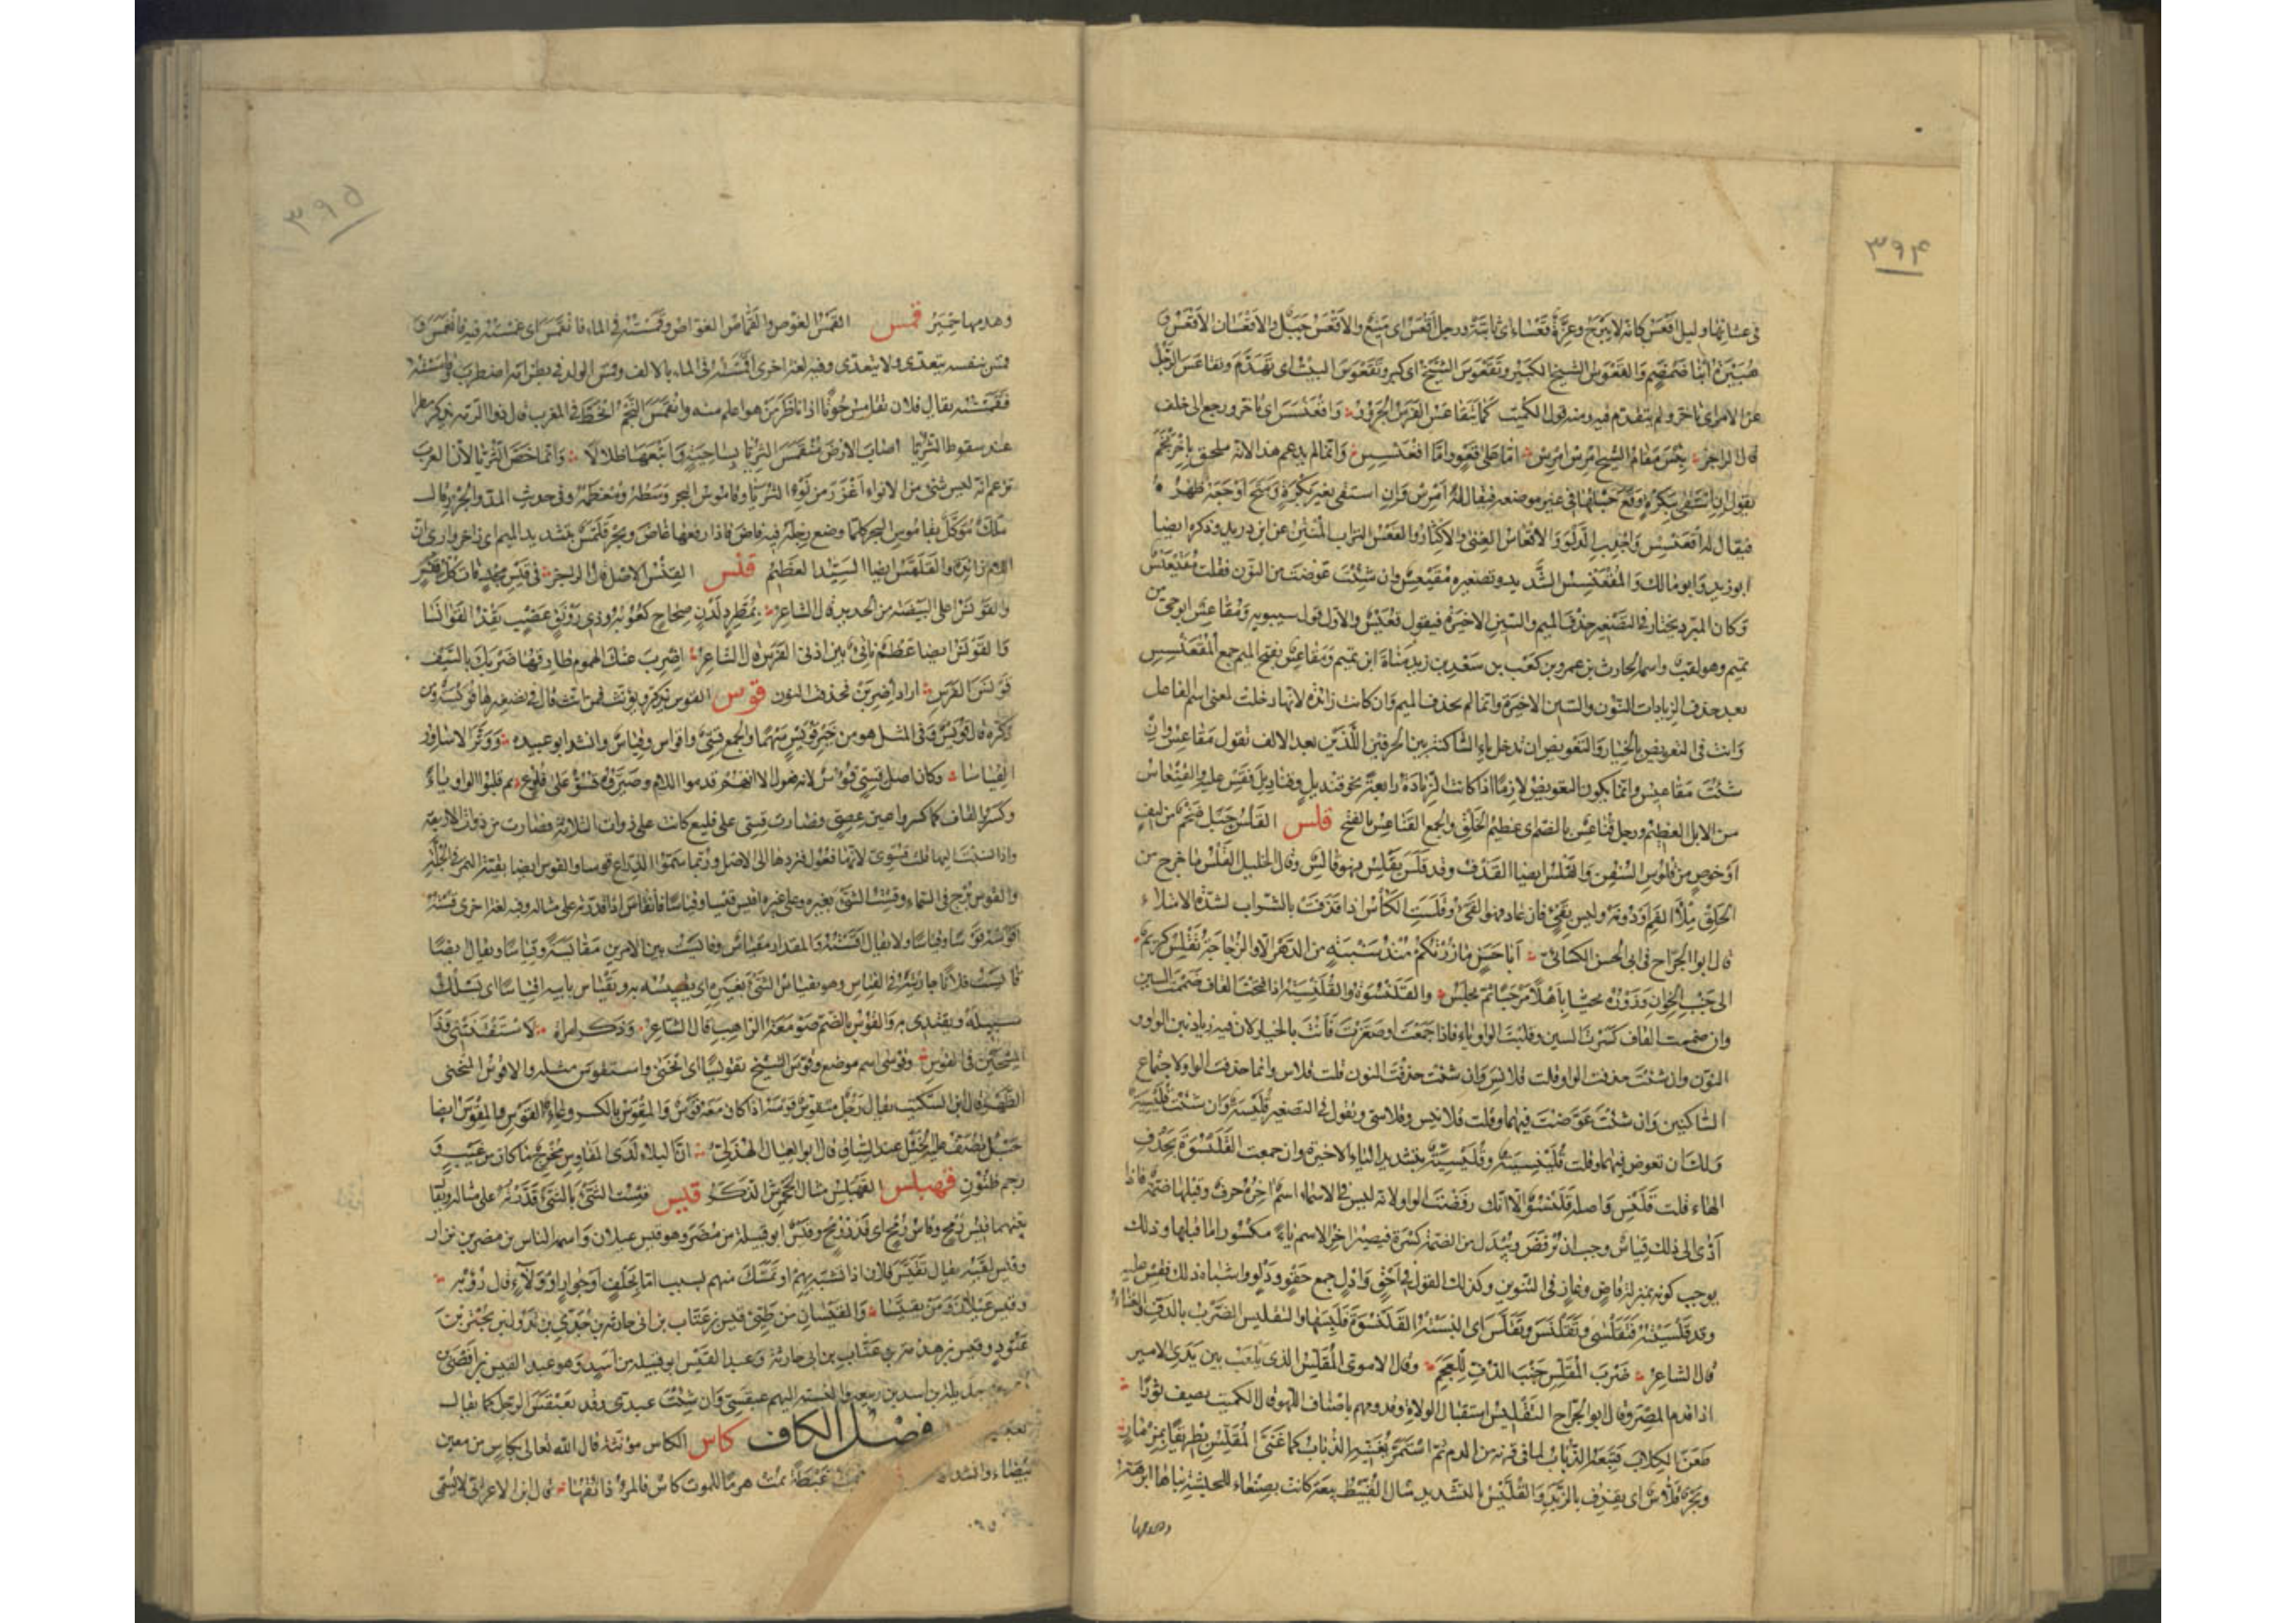 ۳۹۴
فى عشائها وليل اقعس كانه لا يبرح وعزّة قعساء اى ثابتة ورجل اقعس اى منيع والاقعس جبل والاقعسان الاقعس و
هبيرة ابنا ضمضم والقعوس الشيخ الكبير وتقعوس الشيخ اى كبر وتقعوس البيت اى تهدّم وتقاعس الرجل
عن الامر اى تاخر ولم يتقدم فيه ومنه قول الكميت كما يتقاعس الفرس الجرور واقعنسس اى تاخر ورجع الى خلف
قال الراجز بئس مقام الشيخ امرس امرس امّا على قعو وامّا اقعنسس وانما لم يدغم هذا لانه ملحق باحرنجم
يقول ان استقى ببكرة وقع حبلها فى غير موضعه فيقال له امرس وان استقى بغير بكرة ومتح اوجعه ظهره
فيقال له اقعنسس واجذب الدلو والاقعاس الغنى والاكثار والقعس التراب المنتن عن ابن دريد وذكره ايضا
ابو زيد وابو مالك والمقعنسس الشديد وتصغيره مقيعس وان شئت عوّضت من النون فقلت مقيعيس
وكان المبرد يختار فى التصغير حذف الميم والسين الاخيرة فيقول قعيس والاول قول سيبويه ومقاعس ابو حىّ من
تميم وهو لقب واسمه الحارث بن عمرو بن كعب بن سعد بن زيد مناة ابن تميم ومقاعس بفتح الميم جمع المقعنسس
بعد حذف الزيادات النون والسين الاخيرة وانما لم يحذف الميم وان كانت زائدة لانها دخلت لمعنى اسم الفاعل
وانت فى التعويض بالخيار والتعويض ان تدخل ياء ساكنة بين الحرفين اللذين بعد الالف تقول مقاعس وان
شئت مقاعيس وانما يكون التعويض لازما اذا كانت الزيادة رابعة نحو قنديل وقناديل فقس عليه والقنعاس
من الابل العظيم ورجل قناعس بالضم اى عظيم الخلق والجمع القناعس بالفتح قلس القلس حبل ضخم من ليف
او خوص من قلوس السفن والقلس ايضا القذف وقد قلس يقلس فهو قالس وقال الخليل القلس ما خرج من
الحلق ملأ الفم او دونه وليس بقىء فان عاد فهو القىء وقلست الكأس اذا قذفت بالشراب لشدة الامتلاء
قال ابو الجراح فى ابى الحسن الكسائى ابا حسن ما زرتكم منذ سنبة من الدهر الا والزجاجة تقلس كريم
الى جنب الخوان وزوره يحيّا باهلا مرحبا ثم يجلس والقلنسوة والقلنسية اذا فتحت القاف ضممت السين
وان ضممت القاف كسرت السين وقلبت الواو ياء فاذا جمعت او صغرت فانت بالخيار لان فيه زيادتين الواو و
النون وان شئت حذفت الواو فقلت قلانس وان شئت حذفت النون قلت قلاس وانما حذفت الواو لاجتماع
الساكنين وان شئت عوّضت فيهما وقلت قلانيس وقلاسى وتقول فى التصغير قليسة وان شئت قلينسة
ولك ان تعوض فيهما وقلت قلينيسة وقليسيّة بتشديد الياء الاخيرة وان جمعت القلنسوة بحذف
الهاء قلت قلنس واصله قلنسو الا انك رفضت الواو لانه ليس فى الاسماء اسم اخره حرف وقبلها ضمة فاذا
ادّى الى ذلك قياس وجب ان يرفض ويبدل من الضمة كسرة فيصير اخر الاسم ياء مكسورا ما قبلها وذلك
يوجب كونه بمنزلة قاض وغاز فى التنوين وكذلك القول فى احق وادل جمع حقو ودلو واشباه ذلك فقس عليه
وقد قلسيته فتقلسى وتقلنس وتقلّس اى البسته القلنسوة فلبسها والتقليس الضرب بالدف والغناء
قال الشاعر ضرب المقلس جنب الدف للعجم وقال الاموى المقلس الذى يلعب بين يدى الامير
اذا قدم المصر وقال ابو الجراح التقليس استقبال الولاة وقدومهم باصناف اللهو قال الكميت يصف ثورا
طعن الكلاب فتبعه الذباب لما فى قرنه من الدم ثم استمر تغنيه الذباب كما غنى المقلس بطريقا بمزمار
وبحر قلاس اى يقذف بالزبد والقليس بالتشديد مثال القبيط بيعة كانت بصنعاء للحبشة بناها ابرهة
وهدمها
۳۹۵
وهدمها حمير قمس القمس الغوص والقماس الغواص وقمسته فى الماء فانقمس اى غمسته فيه فانغمس و
قمس بنفسه يتعدى ولا يتعدى وفيه لغة اخرى اقمسته فى الماء بالالف وقمس الولد فى بطن امه اضطرب وقامسته
فقمسته يقال فلان يقامس حوتا اذا ناظر من هو اعلم منه وانقمس النجم انحط فى المغرب قال ذو الرمة يذكر مطرا
عند سقوط الثريا اصاب الارض منقمس الثريا بساحية واتبعها طلالا وانما خص الثريا لان العرب
تزعم انه ليس شئ من الانواء اغزر من نوء الثريا وقاموس البحر وسطه ومعظمه وفى حديث المد والجزر قال
ملك موكل بقاموس البحر كلما وضع رجله فيه فاض فاذا رفعها غاض وبحر قلمس بتشديد الميم اى زاخر وارى ان
اللام زائدة والقلمس ايضا السيد العظيم قنس القنس الاصل قال الراجز فى قنس مجد فات كل قنس
والقونس اعلى البيضة من الحديد قال الشاعر بمطرد لدن صحاح كعوبه وذى رونق عضب يقد القوانسا
والقونس ايضا عظم ناتئ بين اذنى الفرس قال الشاعر اضرب عنك الهموم طارقها ضربك بالسيف
قونس الفرس اراد اضربن فحذف النون قوس القوس يذكر ويؤنث فمن انث قال فى تصغيرها قويسة ومن
ذكره قال قويس وفى المثل هو من خير قويس سهما والجمع قسى واقواس وقياس وانشد ابو عبيدة ووتر الاساور
القياسا وكان اصل قسى قووس لانه فعول الا انهم قدموا اللام وصيروه قسو على فلوع ثم قلبوا الواو ياء
وكسروا القاف كما كسروا عين عصى وصارت قسى على فليع كانت على ذوات الثلاثة فصارت من ذوات الاربعة
واذا نسبت اليها قلت قسوى لانها فلوع فتردها الى الاصل وربما سموا الذراع قوسا والقوس ايضا بقية التمر فى الجلة
والقوس برج فى السماء وقست الشئ بغيره وعلى غيره اقيس قيسا وقياسا فانقاس اذا قدرته على مثاله وفيه لغة اخرى قسته
اقوسه قوسا وقياسا ولا يقال اقسته والمقدار مقياس وقايست بين الامرين مقايسة وقياسا ويقال ايضا
قايست فلانا جاريته فى القياس وهو يقتاس الشئ بغيره اى يقيسه به ويقتاس بابيه اقتياسا اى يسلك
سبيله ويقتدى به والقوس بالضم صومعة الراهب قال الشاعر وذكر امرأة لاستفتنتنى وذا
المسحين فى القوس وقوسى اسم موضع وقوس الشيخ تقويسا اى انحنى واستقوس مثله والاقوس المنحنى
الظهر قال ابن السكيت يقال رجل متقوس قوسه اذا كان معه قوس والمقوس بالكسر وعاء القوس والمقوس ايضا
حبل تصف عليه الخيل عند السباق قال ابو العيال الهذلى ان البلاء لدى المقاوس مخرج ما كان من غيب و
رجم ظنون قهبلس القهبلس مثال الجحمرش الذكر قيس قست الشئ بالشئ قدرته على مثاله ويقال
بينهما قيس رمح وقاس رمح اى قدر رمح وقيس ابو قبيلة من مضر وهو قيس عيلان واسمه الناس بن مضر بن نزار
وقيس لقبه يقال تقيس فلان اذا تشبه بهم او تمسك منهم بسبب اما بحلف او جوار او ولاء قال رؤبة
وقيس عيلان ومن تقيسا والقيسان من طيئ قيس بن عتاب بن ابى حارثة بن جدى بن تدول بن بحتر بن
عتود وقيس بن هذمة بن عتاب بن ابى حارثة وعبد القيس ابو قبيلة من اسد وهو عبد القيس بن افصى بن
جديلة بن اسد بن ربيعة والنسبة اليهم عبقسى وان شئت عبدى وقد تعبقس الرجل كما يقال
فصل الكاف كاس الكاس مؤنثة قال الله تعالى بكاس من معين
بيضاء وانشد غبطة يمت هرما للموت كاس فالمرء ذائقها قال ابن الاعرابى لا تسمى